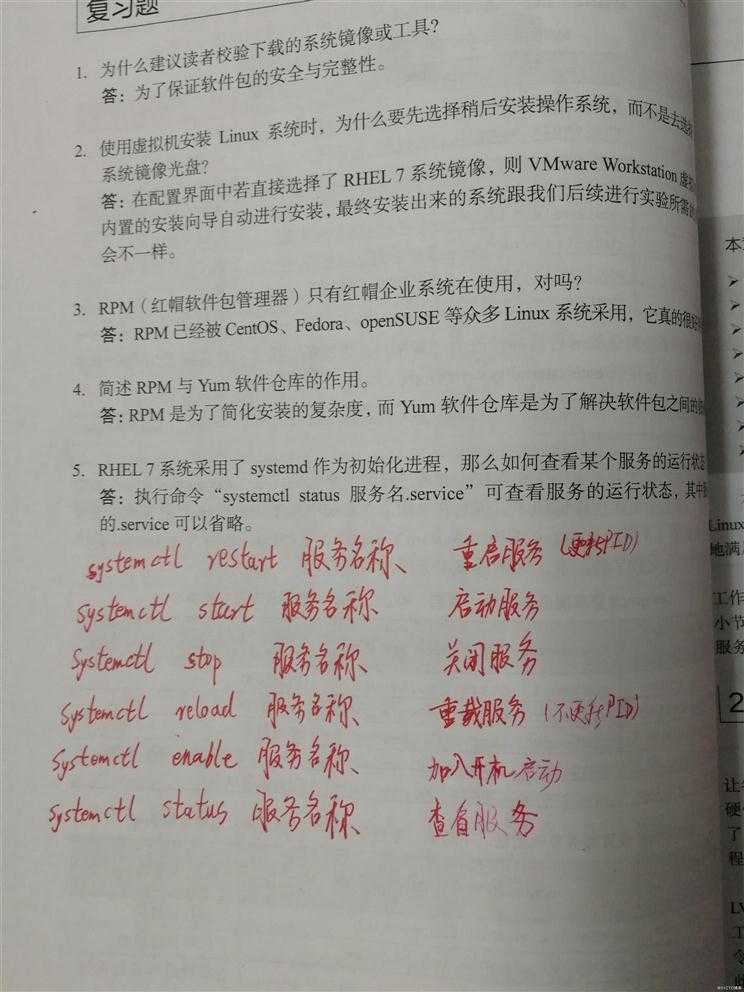 复习题
1. 为什么建议读者校验下载的系统镜像或工具？
答：为了保证软件包的安全与完整性。
2. 使用虚拟机安装 Linux 系统时，为什么要先选择稍后安装操作系统，而不是去选择
系统镜像光盘？
答：在配置界面中若直接选择了 RHEL 7 系统镜像，则 VMware Workstation 虚
内置的安装向导自动进行安装，最终安装出来的系统跟我们后续进行实验所需的
会不一样。
3. RPM（红帽软件包管理器）只有红帽企业系统在使用，对吗？
答：RPM 已经被 CentOS、Fedora、openSUSE 等众多 Linux 系统采用，它真的很好
4. 简述 RPM 与 Yum 软件仓库的作用。
答：RPM 是为了简化安装的复杂度，而 Yum 软件仓库是为了解决软件包之间的
5. RHEL 7 系统采用了 systemd 作为初始化进程，那么如何查看某个服务的运行状态
答：执行命令“systemctl status 服务名.service”可查看服务的运行状态，其中
的.service 可以省略。
systemctl restart 服务名称、 重启服务（更新PID）
systemctl start 服务名称 启动服务
systemctl stop 服务名称、 关闭服务
systemctl reload 服务名称、 重载服务（不更新PID）
systemctl enable 服务名称、 加入开机启动
systemctl status 服务名称、 查看服务
本
Linux
地满
工作
小节
服务
2
让
硬
了
程
LV
工
令